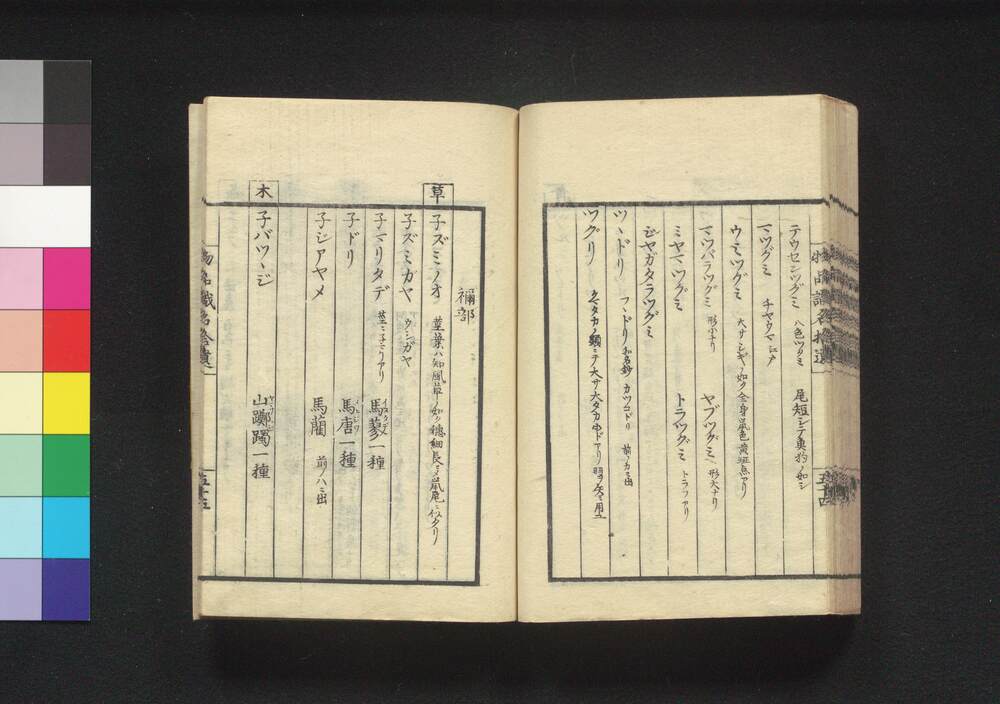 テウセンツグミ 八色ツグミ 尾短シテ奥約ノ如シ
マツグミ チヤウマ江戸
ウミツグミ 大サシギノ如ク全身黒色黄斑点アリ
マツバラツグミ 形小ナリ ヤブツグミ 形大ナリ
ミヤマツグミ トラツグミ トラフアリ
ジヤガタラツグミ
ツヽドリ フヽドリ 和名鈔 カツコドリ 前ノカニ出
ツグリ
物品識名拾遺
五十四
禰部
草
子ズミノオ 葉ハ知風草ノ如ク穂細長ク鼠尾ニ似タリ
子ズミガヤ ウシガヤ
子マリタデ 茎ニ子マリアリ 馬蓼一種
子ドリ 馬唐一種
子ジアヤメ 馬藺 前ノハニ出
木
子バツヽジ 山躑躅一種
物品識名拾遺
五十五